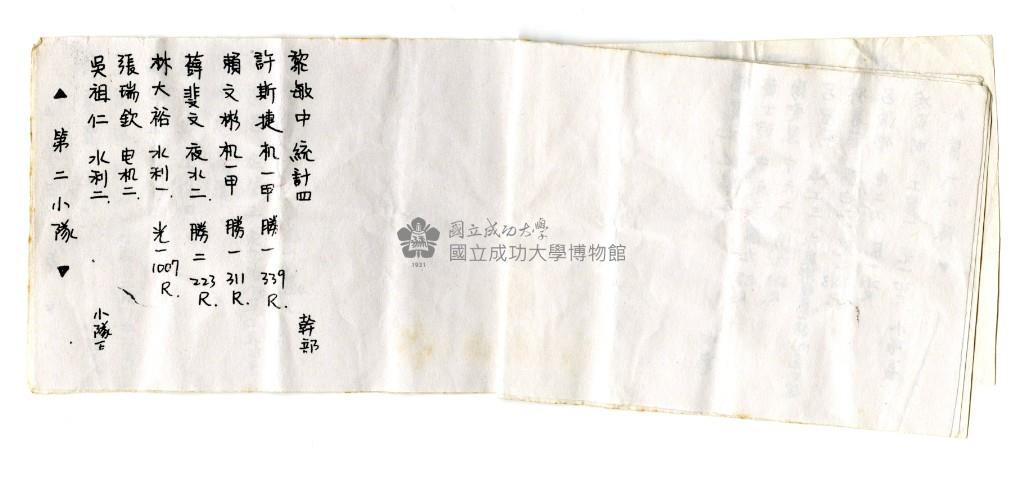 ▲ 第二小隊 ▼
吳祖仁 水利二. 小隊
張瑞欽 电机二.
林大裕 水利一. 光一 1007 R.
薛斐文 夜水二. 勝二 223 R.
賴文彬 机一甲 勝一 311 R.
許斯捷 机一甲 勝一 339 R.
黎敏中 統計四 幹部
國立成功大學
國立成功大學博物館
1931